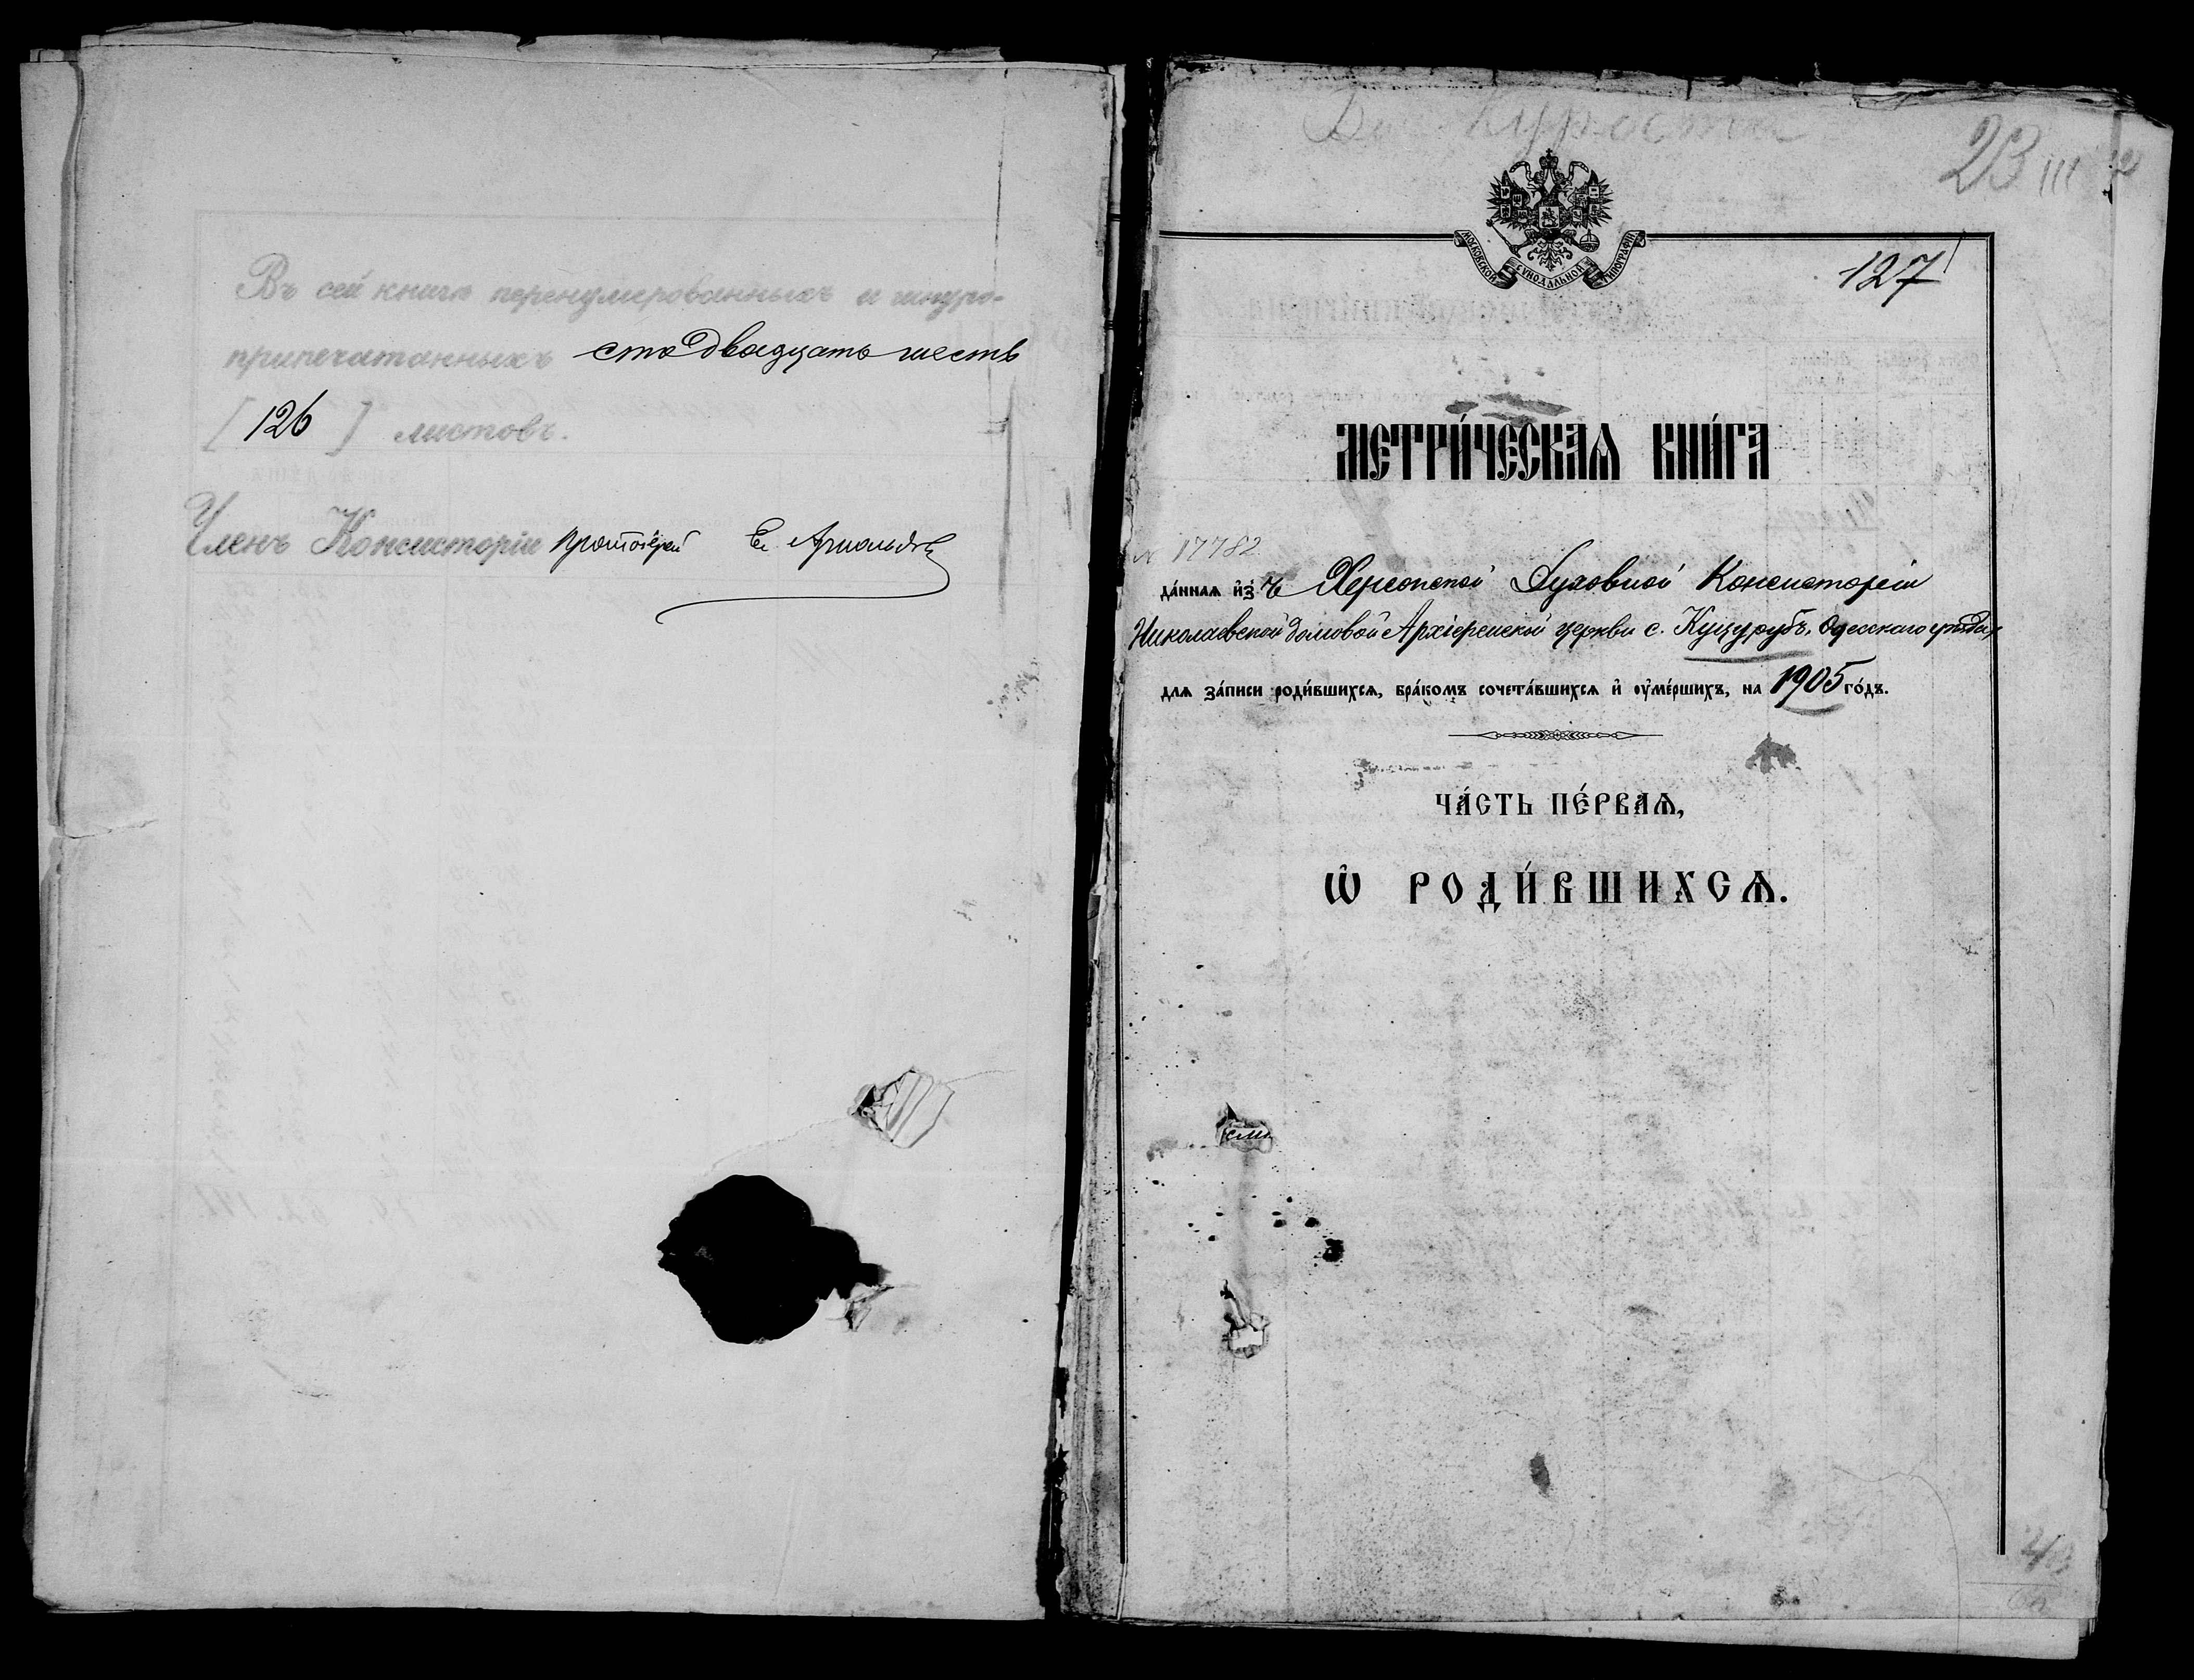 Въ сей книгѣ перенумерованныхъ и шнуро-
припечатанныхъ сто двадцать шесть
[ 126 ] листовъ.
Членъ Консисторіи Протоіерей Ев. Арнольдовъ
23 III
МОСКОВСКОЙ СѴНОДАЛЬНОЙ ТИПОГРАФІИ
127
МЕТРИ́ЧЕСКАѦ КНИ́ГА
№ 17782
да́ннаѧ и҆зъ Херсонской Духовной Консисторіи
Николаевской домовой Архіерейской церкви с. Куцурубъ, Одесскаго уѣзда,
длѧ за́писи роди́вшихсѧ, бра́комъ сочета́вшихсѧ и҆ ᲂу҆ме́ршихъ, на 1905 го́дъ.
ЧА́СТЬ ПЕ́РВАѦ,
Ѡ҆ РОДИ́ВШИХСѦ.